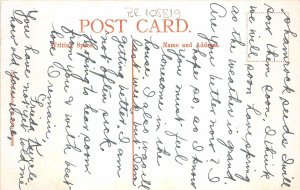 BR 105819
POST CARD.
Writing Space
Name and Address
shamrock seeds I will
sow them soon I think
we will soon have spring
as the weather is grand
Are you better now? I
hope so, as I know
you must feel
lonesome in the
house, I also was ill
last week but I am
getting better, I am
not often sick
Hoping to hear soon
from you & with best
love I remain
You have not yet told me
how old you are